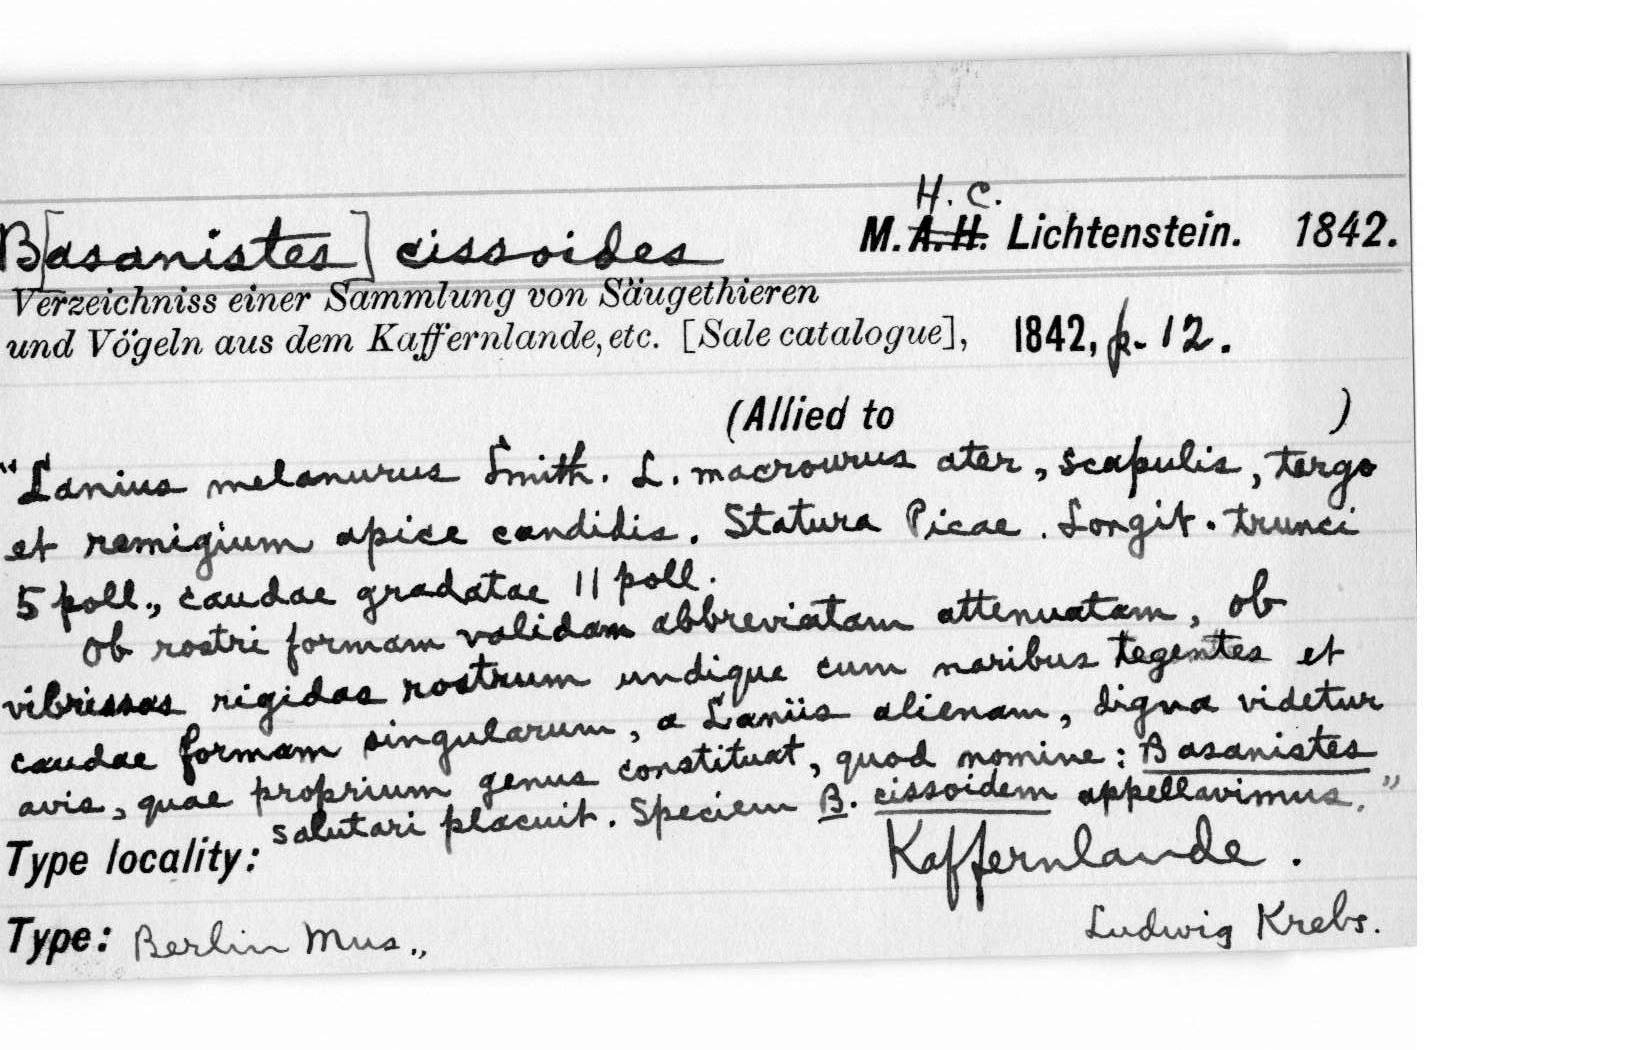 H. C.
B[asanistes] cissoides M. A. H. Lichtenstein. 1842.
Verzeichniss einer Sammlung von Säugethieren
und Vögeln aus dem Kaffernlande, etc. [Sale catalogue], 1842, p. 12.
(Allied to )
"Lanius melanurus Smith. L. macrourus ater, scapulis, tergo
et remigium apice candidis. Statura Picae. Longit. trunci
5 poll., caudae gradatae 11 poll.
Ob rostri formam validam abbreviatam attenuatam, ob
vibrissas rigidas rostrum undique cum naribus tegentes et
caudae formam singularum, a Laniis alienam, digna videtur
avis, quae proprium genus constituat, quod nomine: Basanistes
salutari placuit. Speciem B. cissoidem appellavimus."
Type locality: Kaffernlande.
Type: Berlin Mus., Ludwig Krebs.